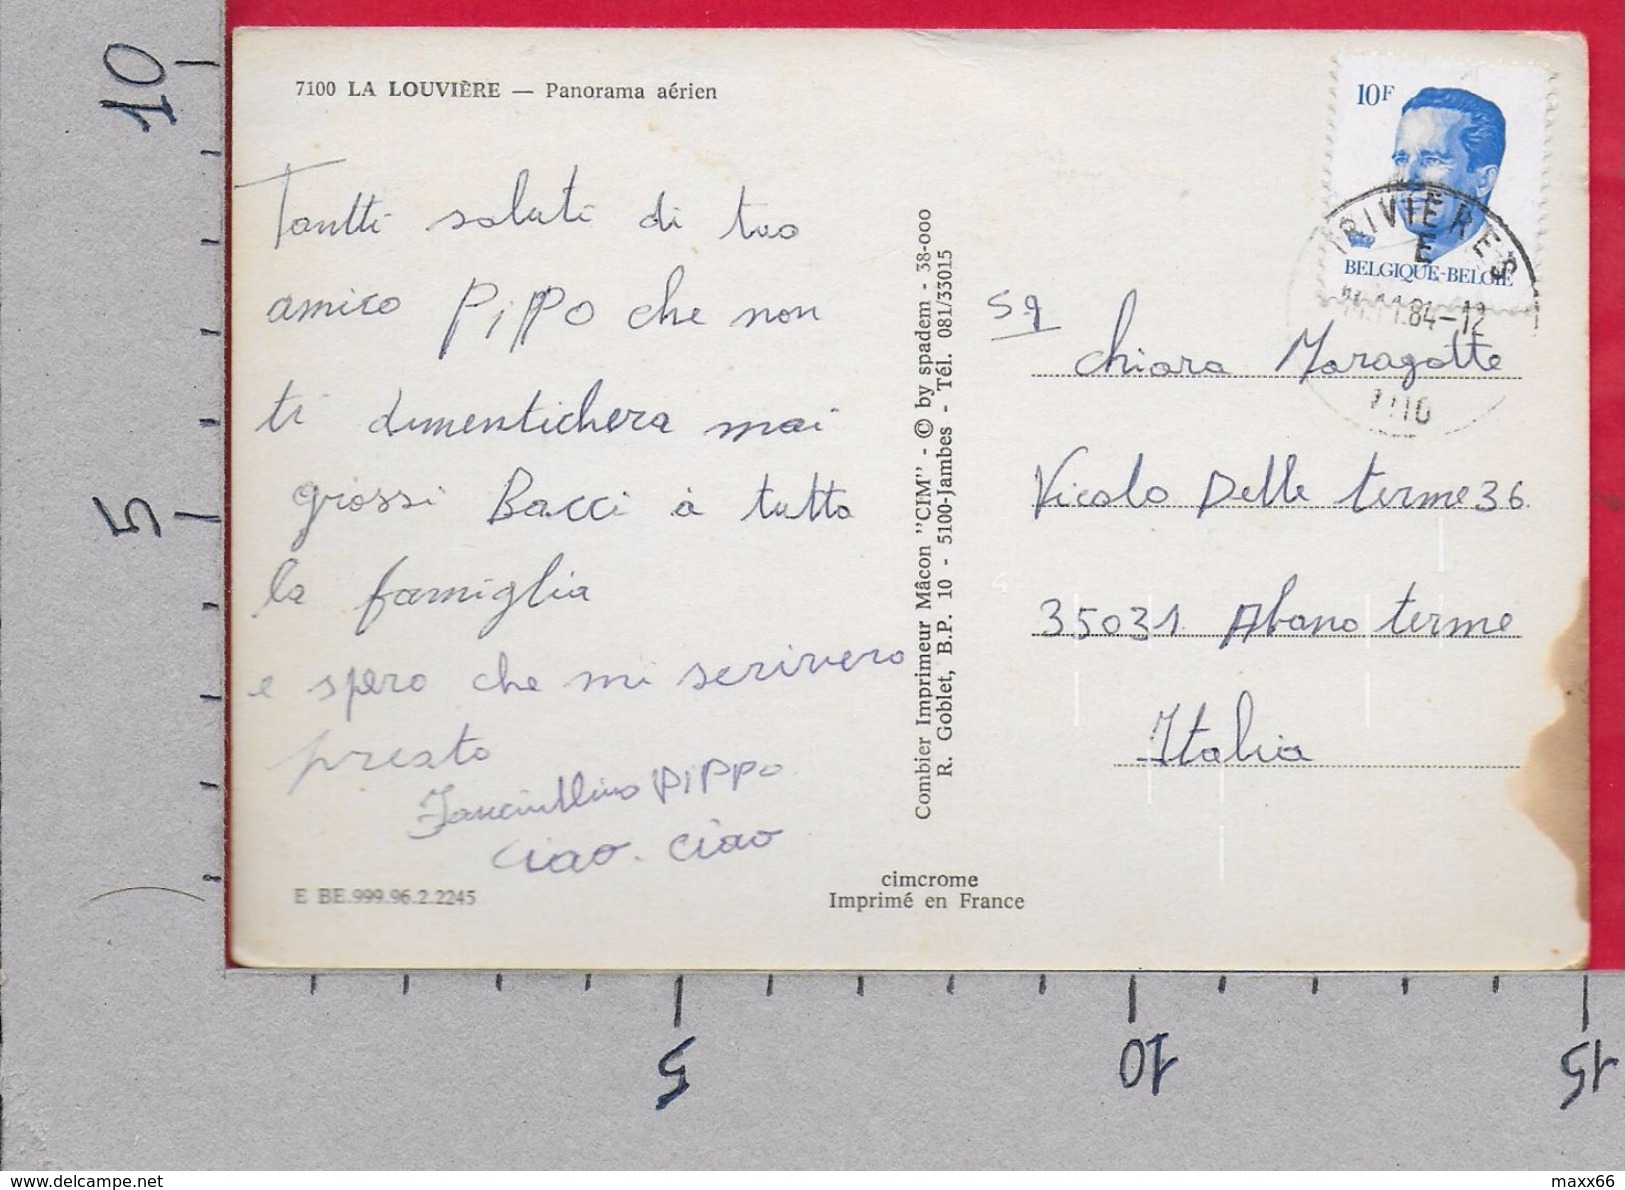 7100 LA LOUVIÈRE — Panorama aérien
Tantti saluti di tuo
amico PiPPO che non
ti dimentichera mai
grossi Bacci à tutta
la famiglia
e spero che mi scrivero
presto
PiPPO
ciao. ciao
E BE.999.96.2.2245
Combier Imprimeur Mâcon "CIM" - © by spadem - 38-000
R. Goblet, B.P. 10 - 5100-Jambes - Tél. 081/33015
cimcrome
Imprimé en France
10F
BELGIQUE-BELGIË
TRIVIERES
E
11.84-12
7110
Sq
Chiara Maragotte
Vicolo Delle terme 36.
35031 Abano terme
Italia
10
5
5
10
15
delcampe.net
maxx66